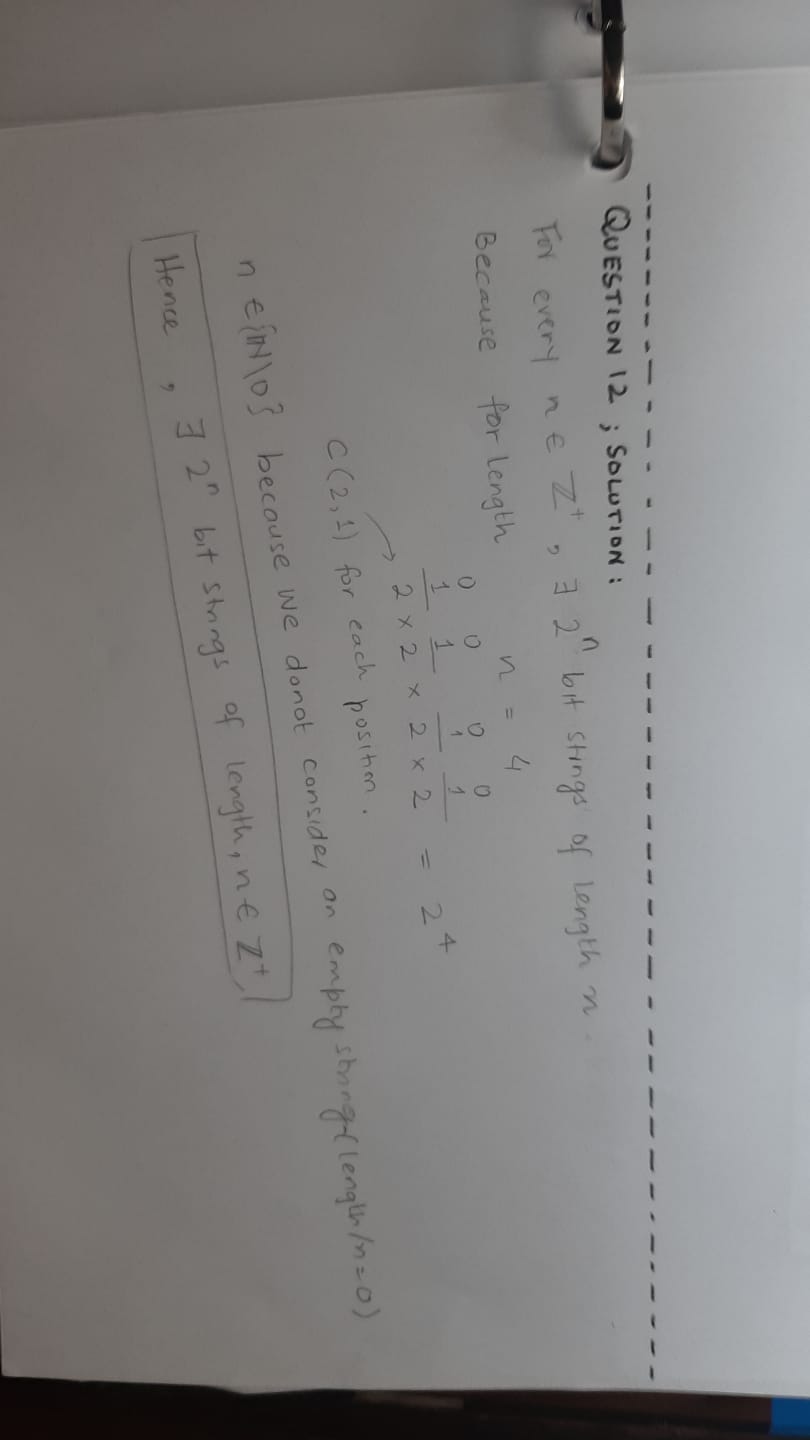 QUESTION 12 ; SOLUTION :
For every n ∈ ℤ⁺ , ∃ 2ⁿ bit strings of length n .
Because for length n = 4
0 0 0 0
1 1 1 1
2 × 2 × 2 × 2 = 2⁴
C(2,1) for each position .
n ∈ {ℕ\0} because we donot consider an empty string (length/n=0)
Hence , ∃ 2ⁿ bit strings of length, n ∈ ℤ⁺